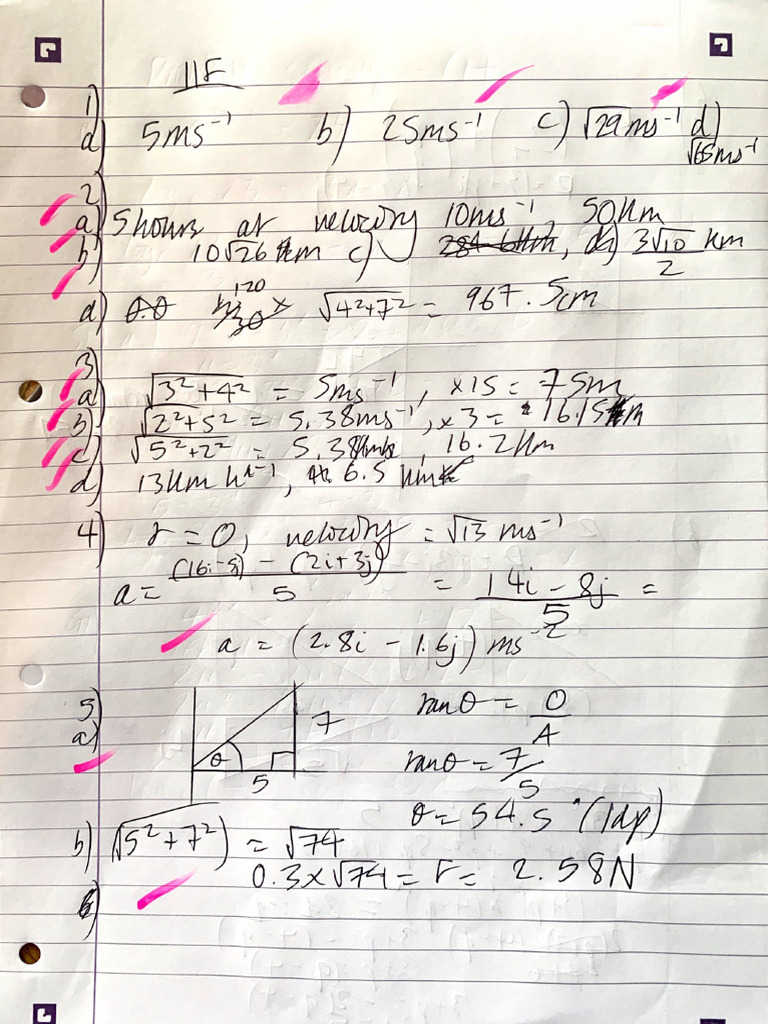 11F
1)
a) 5ms⁻¹ b) 25ms⁻¹ c) √29 ms⁻¹ d) √65 ms⁻¹
2)
a) 5 hours at velocity 10ms⁻¹, 50km
b) 10√26 km c) 284.6km, d) 3√10/2 km
d) 120 × √4²+7² = 967.5cm
3)
a) √3²+4² = 5ms⁻¹, ×15 = 75m
b) √2²+5² = 5.38ms⁻¹, ×3 = 16.15 m
c) √5²+2² = 5.38 , 16.2km
d) 13km h⁻¹, 6.5 km
4) r = 0, velocity = √13 ms⁻¹
a = (16i-5j) - (2i+3j)/5 = 14i - 8j/5 =
a = (2.8i - 1.6j) ms⁻²
5)
a) θ 5 7 tanθ = O/A
tanθ = 7/5
θ = 54.5° (1dp)
b) √(5²+7²) = √74
0.3×√74 = F = 2.58N
6)